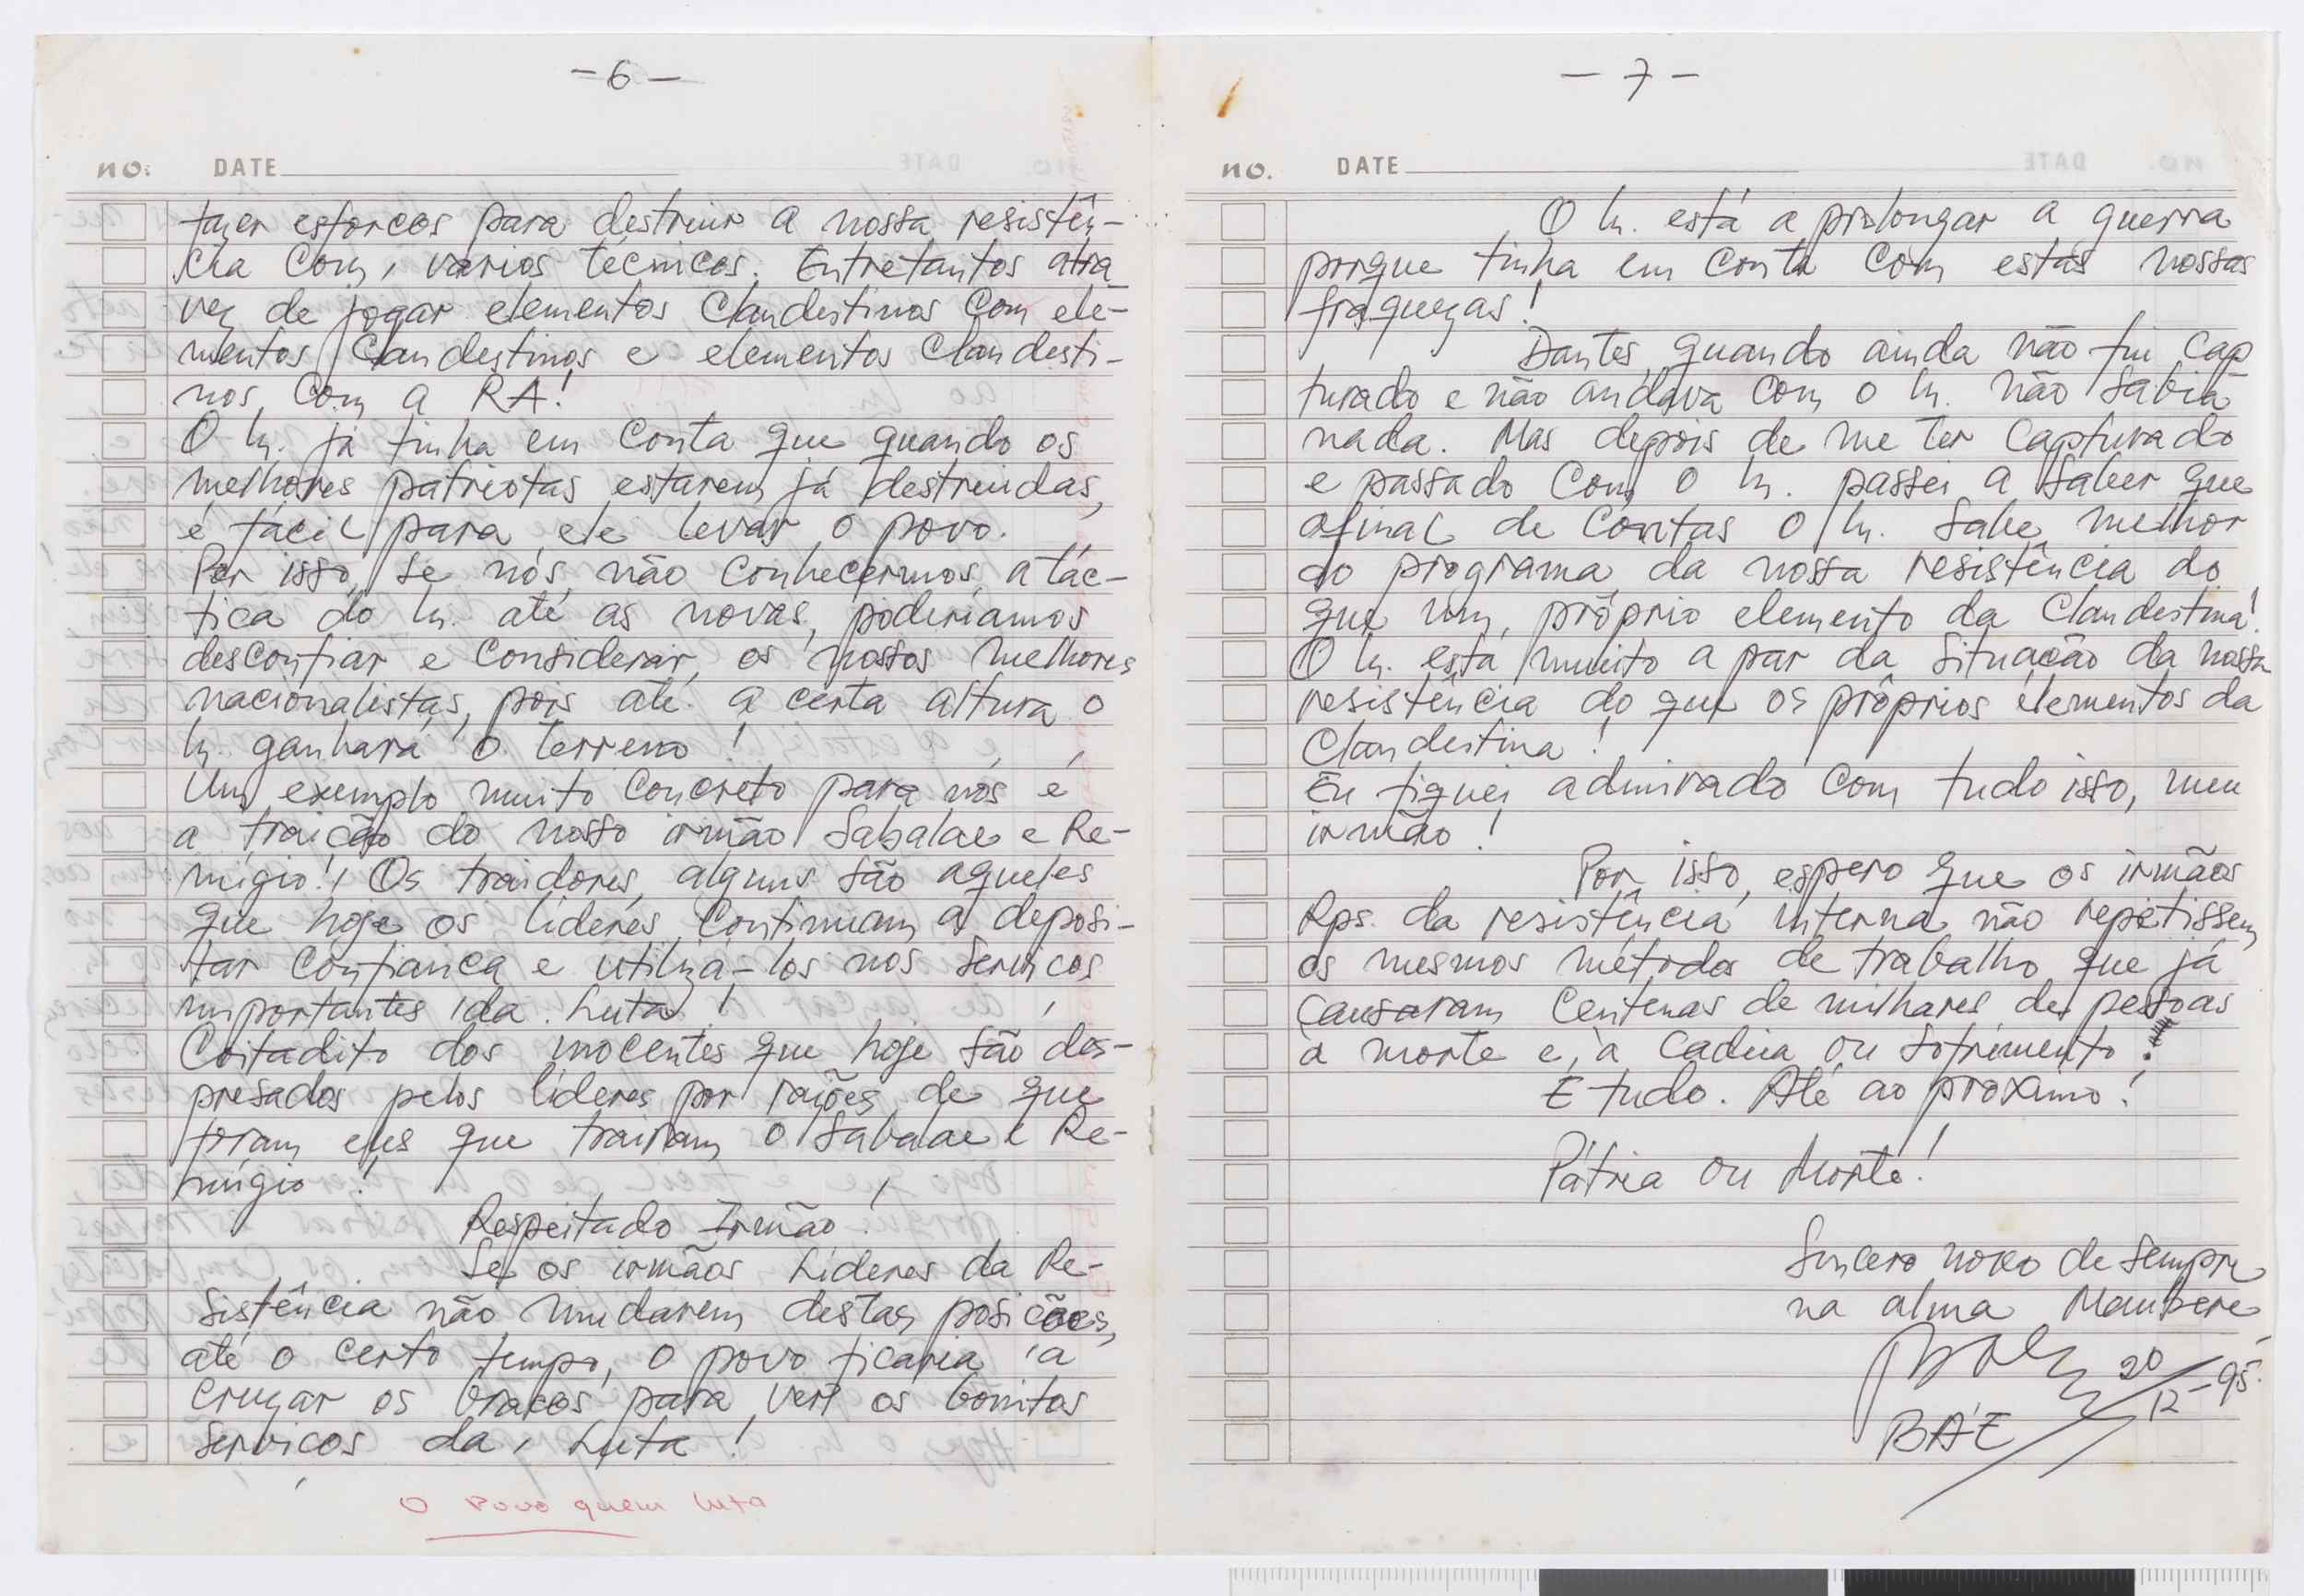 - 6 -
NO. DATE
fazer esforcos para destruir a nossa resistên-
cia com, varios técnicos. Entretantos atra
vez de jogar elementos clandestinos com ele-
mentos clandestinos e elementos clandesti-
nos com a RA!
O In. já tinha em conta que quando os
melhores patriotas estarem já destruidas,
é fácil para ele levar o povo.
Por isso, se nós não conhecermos a tác-
tica do In. até as novas, poderiamos
desconfiar e considerar os nossos melhores
nacionalistas, pois até a certa altura o
In. ganhará o terreno!
Um exemplo muito concreto para nós é
a traição do nosso irmão Sabalae e Re-
migio! Os traidores, alguns são aqueles
que hoje os lideres continuam a deposi-
tar confiança e utilizá-los nos servicos
importantes da Luta!
Coitadito dos inocentes que hoje são des-
presados pelos líderes por raiões de que
foram eles que trairam o Sabalae e Re-
mígio!
Respeitado Irmão!
Se os irmãos Lideres da Re-
sistência não mudarem destas posicões,
até o certo tempo, o povo ficaria a
cruzar os braços para ver os bonitos
servicos da Luta!
O Povo quem luta
- 7 -
NO. DATE
O In. está a prolongar a guerra
porque tinha em conta com estas nossas
fraquezas!
Dantes, quando ainda não fui cap
turado e não andava com o In. não sabia
nada. Mas depois de me ter capturado
e passado com o In. passei a saber que
afinal de contas o In. sabe melhor
do programa da nossa resistência do
que um próprio elemento da Clandestina!
O In. está muito a par da situação da nossa
resistência do que os próprios elementos da
Clandestina!
Eu fiquei admirado com tudo isso, meu
irmão!
Por isso, espero que os irmãos
Rps. da resistência interna não repetissem
os mesmos métodos de trabalho que já
causaram centenas de milhares de pessoas
à morte e à cadeia ou sofrimento!
É tudo. Até ao proximo!
Pátria ou Morte!
Sincero nosso de sempre
na alma Maubere
20/12-95.
BÁE